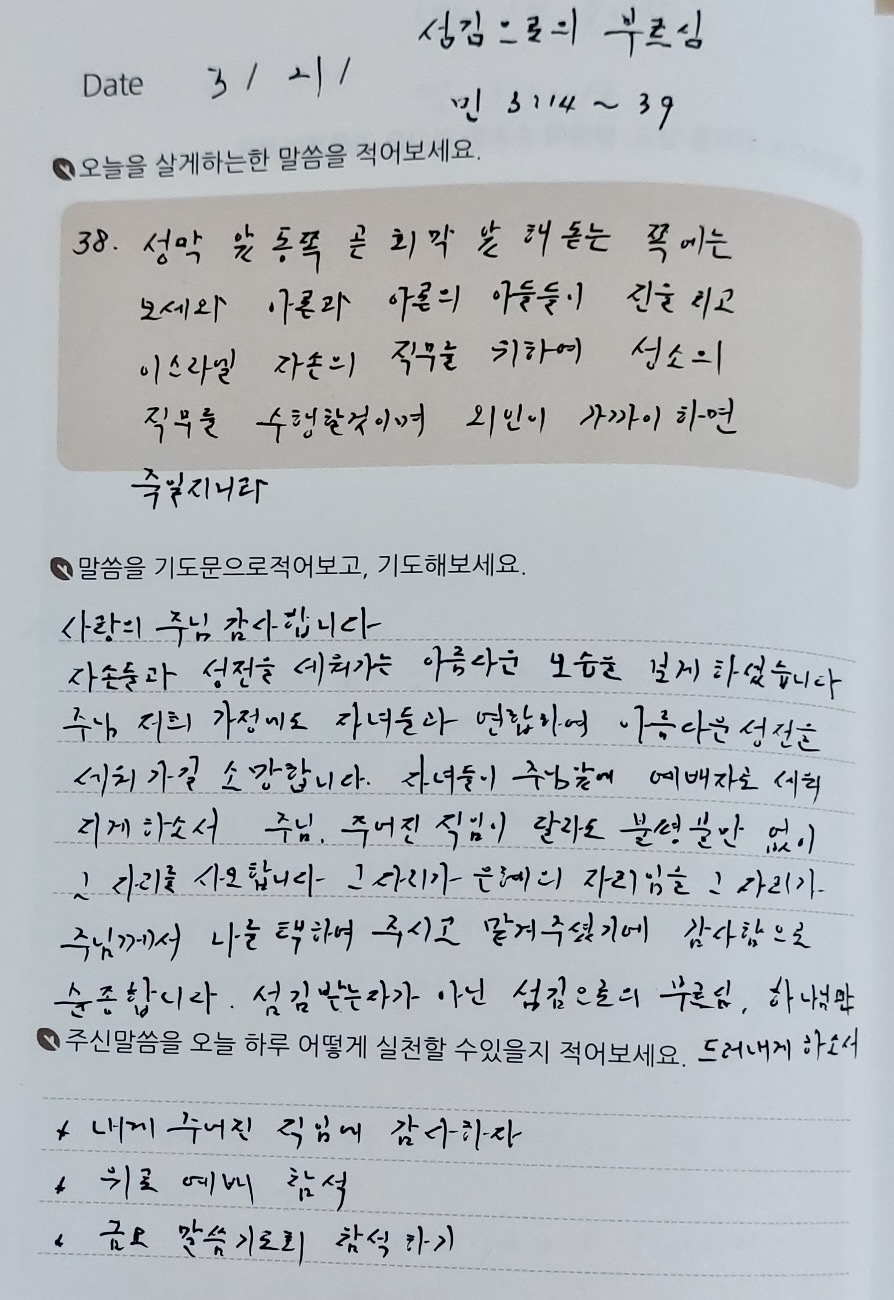 섬김으로의 부르심
Date 3 / 21 /
민 3:14 ~ 39
오늘을 살게하는한 말씀을 적어보세요.
38. 성막 앞 동쪽 곧 회막 앞 해 돋는 쪽에는
모세와 아론과 아론의 아들들이 진을 치고
이스라엘 자손의 직무를 위하여 성소의
직무를 수행할것이며 외인이 가까이 하면
죽일지니라
말씀을 기도문으로적어보고, 기도해보세요.
사랑의 주님 감사합니다
자손들과 성전을 세워가는 아름다운 모습을 보게 하셨습니다
주님 저희 가정에도 자녀들과 연합하여 아름다운 성전을
세워 가길 소망합니다. 자녀들이 주님앞에 예배자로 세워
지게 하소서 주님. 주어진 직임이 달라도 불평불만 없이
그 자리를 사모합니다 그 자리가 은혜의 자리임을 그 자리가
주님께서 나를 택하여 주시고 맡겨주셨기에 감사함으로
순종합니다. 섬김받는자가 아닌 섬김으로의 부르심, 하나님만
주신말씀을 오늘 하루 어떻게 실천할 수있을지 적어보세요. 드러내게 하소서
* 내게 주어진 직임에 감사하자
* 위로 예배 참석
* 금요 말씀기도회 참석하기